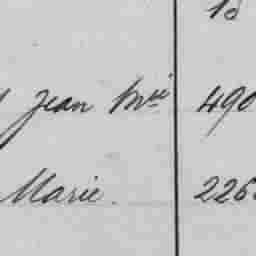 Jean Mie 490
Marie. 226